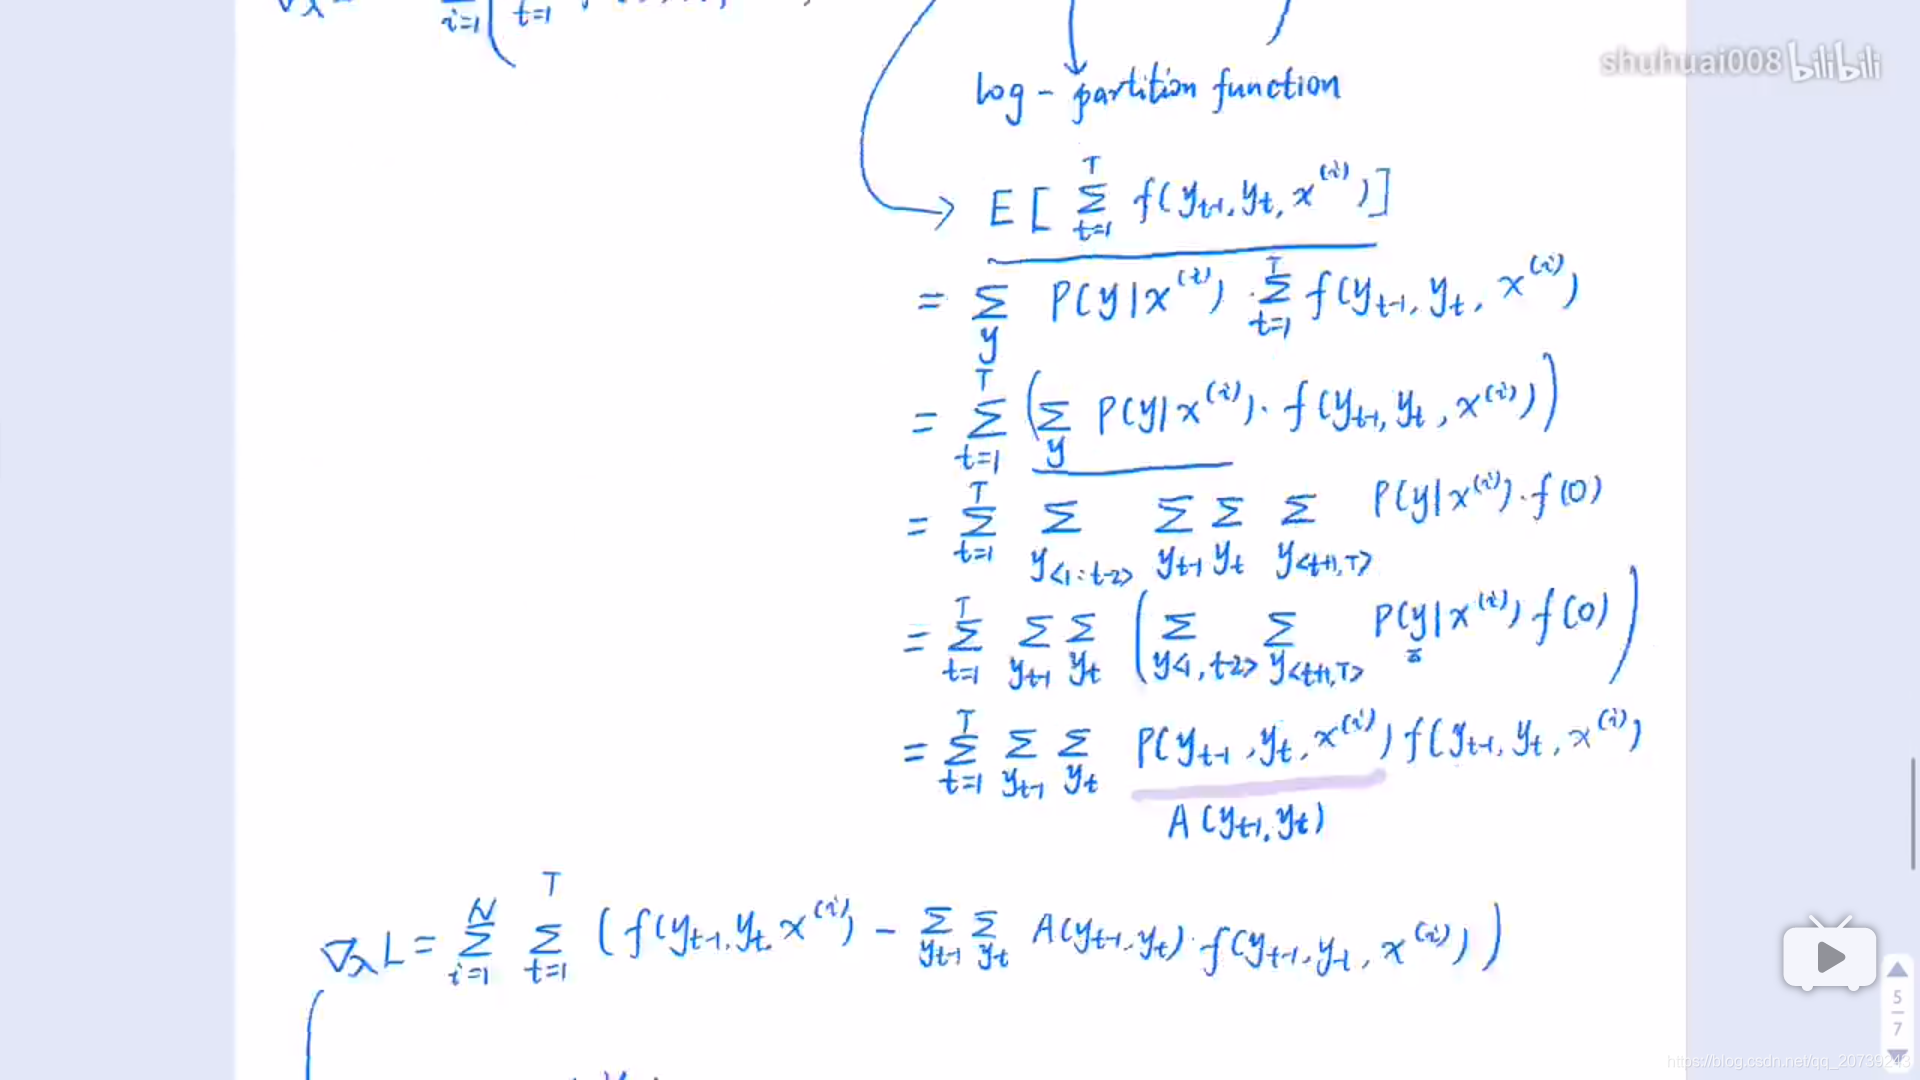 shuhuai008 bilibili
log - partition function
E [ ∑_{t=1}^{T} f(y_{t-1}, y_t, x^{(i)}) ]
= ∑_y P(y|x^{(i)}) · ∑_{t=1}^{T} f(y_{t-1}, y_t, x^{(i)})
= ∑_{t=1}^{T} ( ∑_y P(y|x^{(i)}) · f(y_{t-1}, y_t, x^{(i)}) )
= ∑_{t=1}^{T} ∑_{y<1:t-2>} ∑_{y_{t-1}} ∑_{y_t} ∑_{y<t+1,T>} P(y|x^{(i)}) · f(0)
= ∑_{t=1}^{T} ∑_{y_{t-1}} ∑_{y_t} ( ∑_{y<1,t-2>} ∑_{y<t+1,T>} P(y|x^{(i)}) f(0) )
= ∑_{t=1}^{T} ∑_{y_{t-1}} ∑_{y_t} P(y_{t-1}, y_t, x^{(i)}) f(y_{t-1}, y_t, x^{(i)})
A(y_{t-1}, y_t)
∇_λ L = ∑_{i=1}^{N} ∑_{t=1}^{T} ( f(y_{t-1}, y_t, x^{(i)}) - ∑_{y_{t-1}} ∑_{y_t} A(y_{t-1}, y_t) · f(y_{t-1}, y_t, x^{(i)}) )
5
7